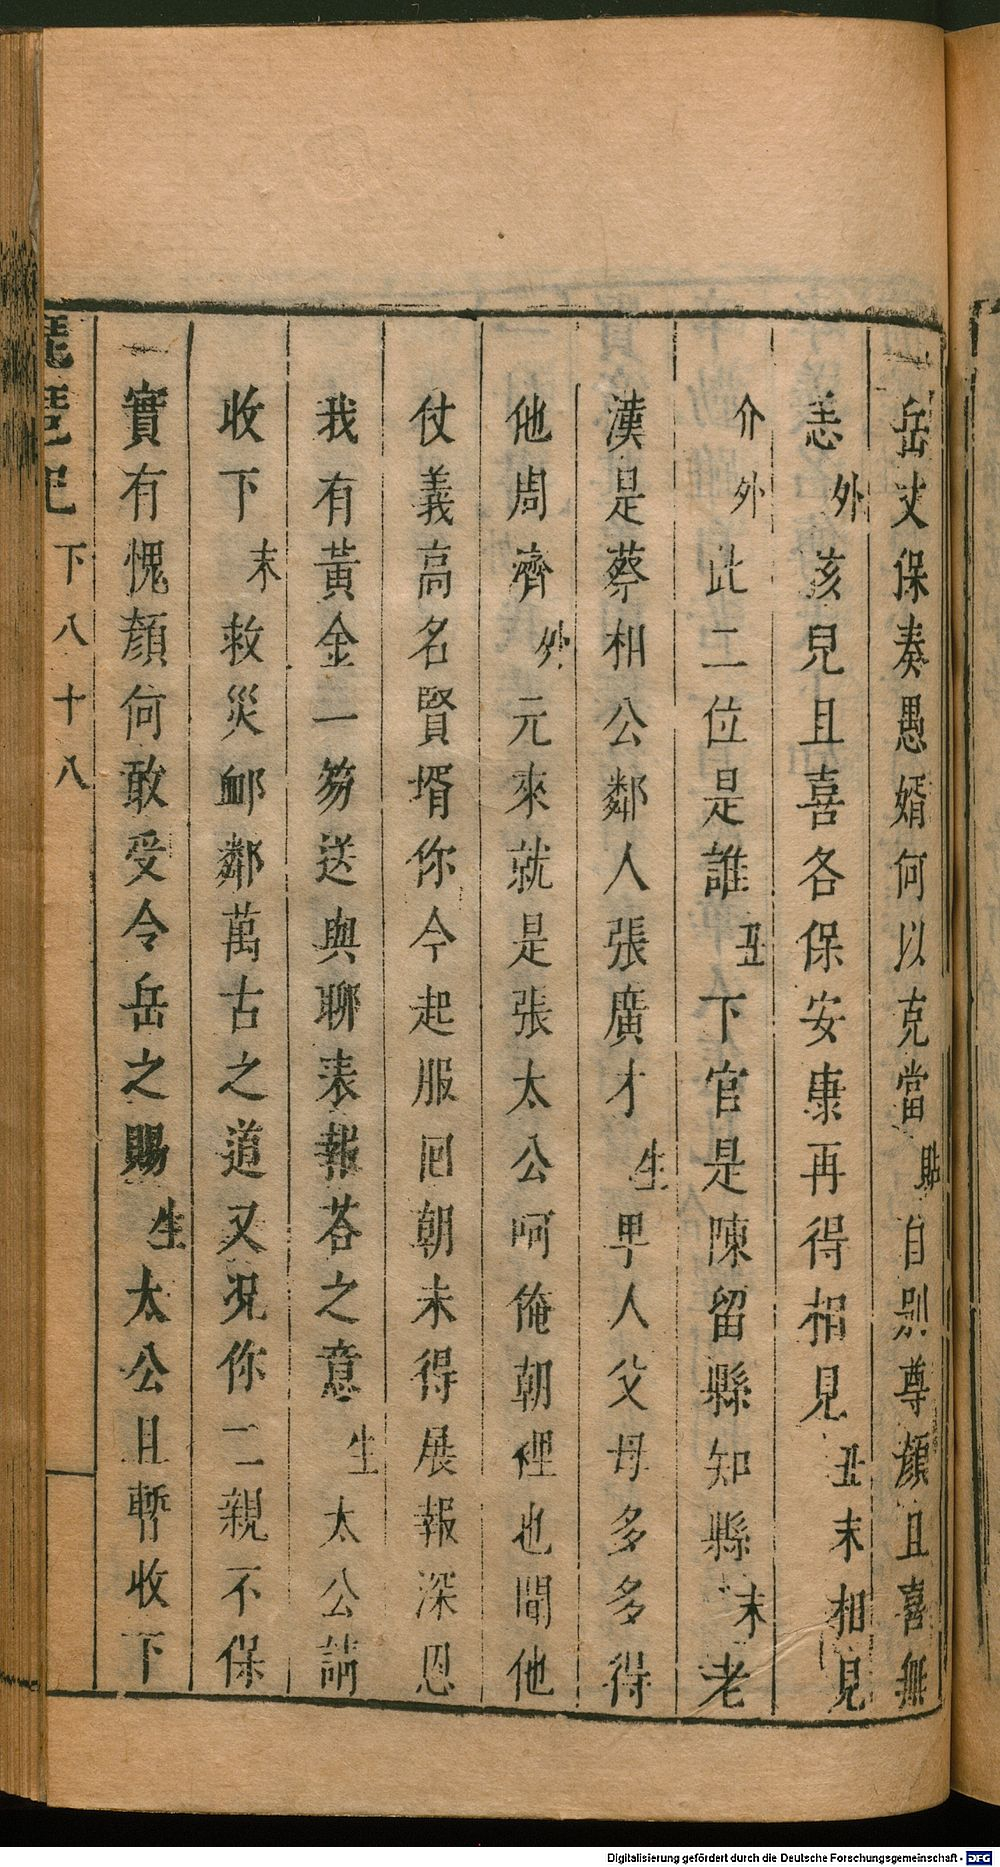 岳丈保奏愚婿何以克當貼自別尊顏且喜無
恙外孩兒且喜各保安康再得相見丑末相見
介外此二位是誰丑下官是陳留縣知縣末老
漢是蔡相公鄰人張廣才生卑人父母多多得
他周濟外元來就是張太公呵俺朝裡也聞他
仗義高名賢壻你今起服囘朝未得展報深恩
我有黃金一笏送與聊表報荅之意生太公請
收下末救災卹鄰萬古之道又况你二親不保
實有愧顏何敢受令岳之賜生太公且暫收下
琵琶記 下 八十八
Digitalisierung gefördert durch die Deutsche Forschungsgemeinschaft - DFG